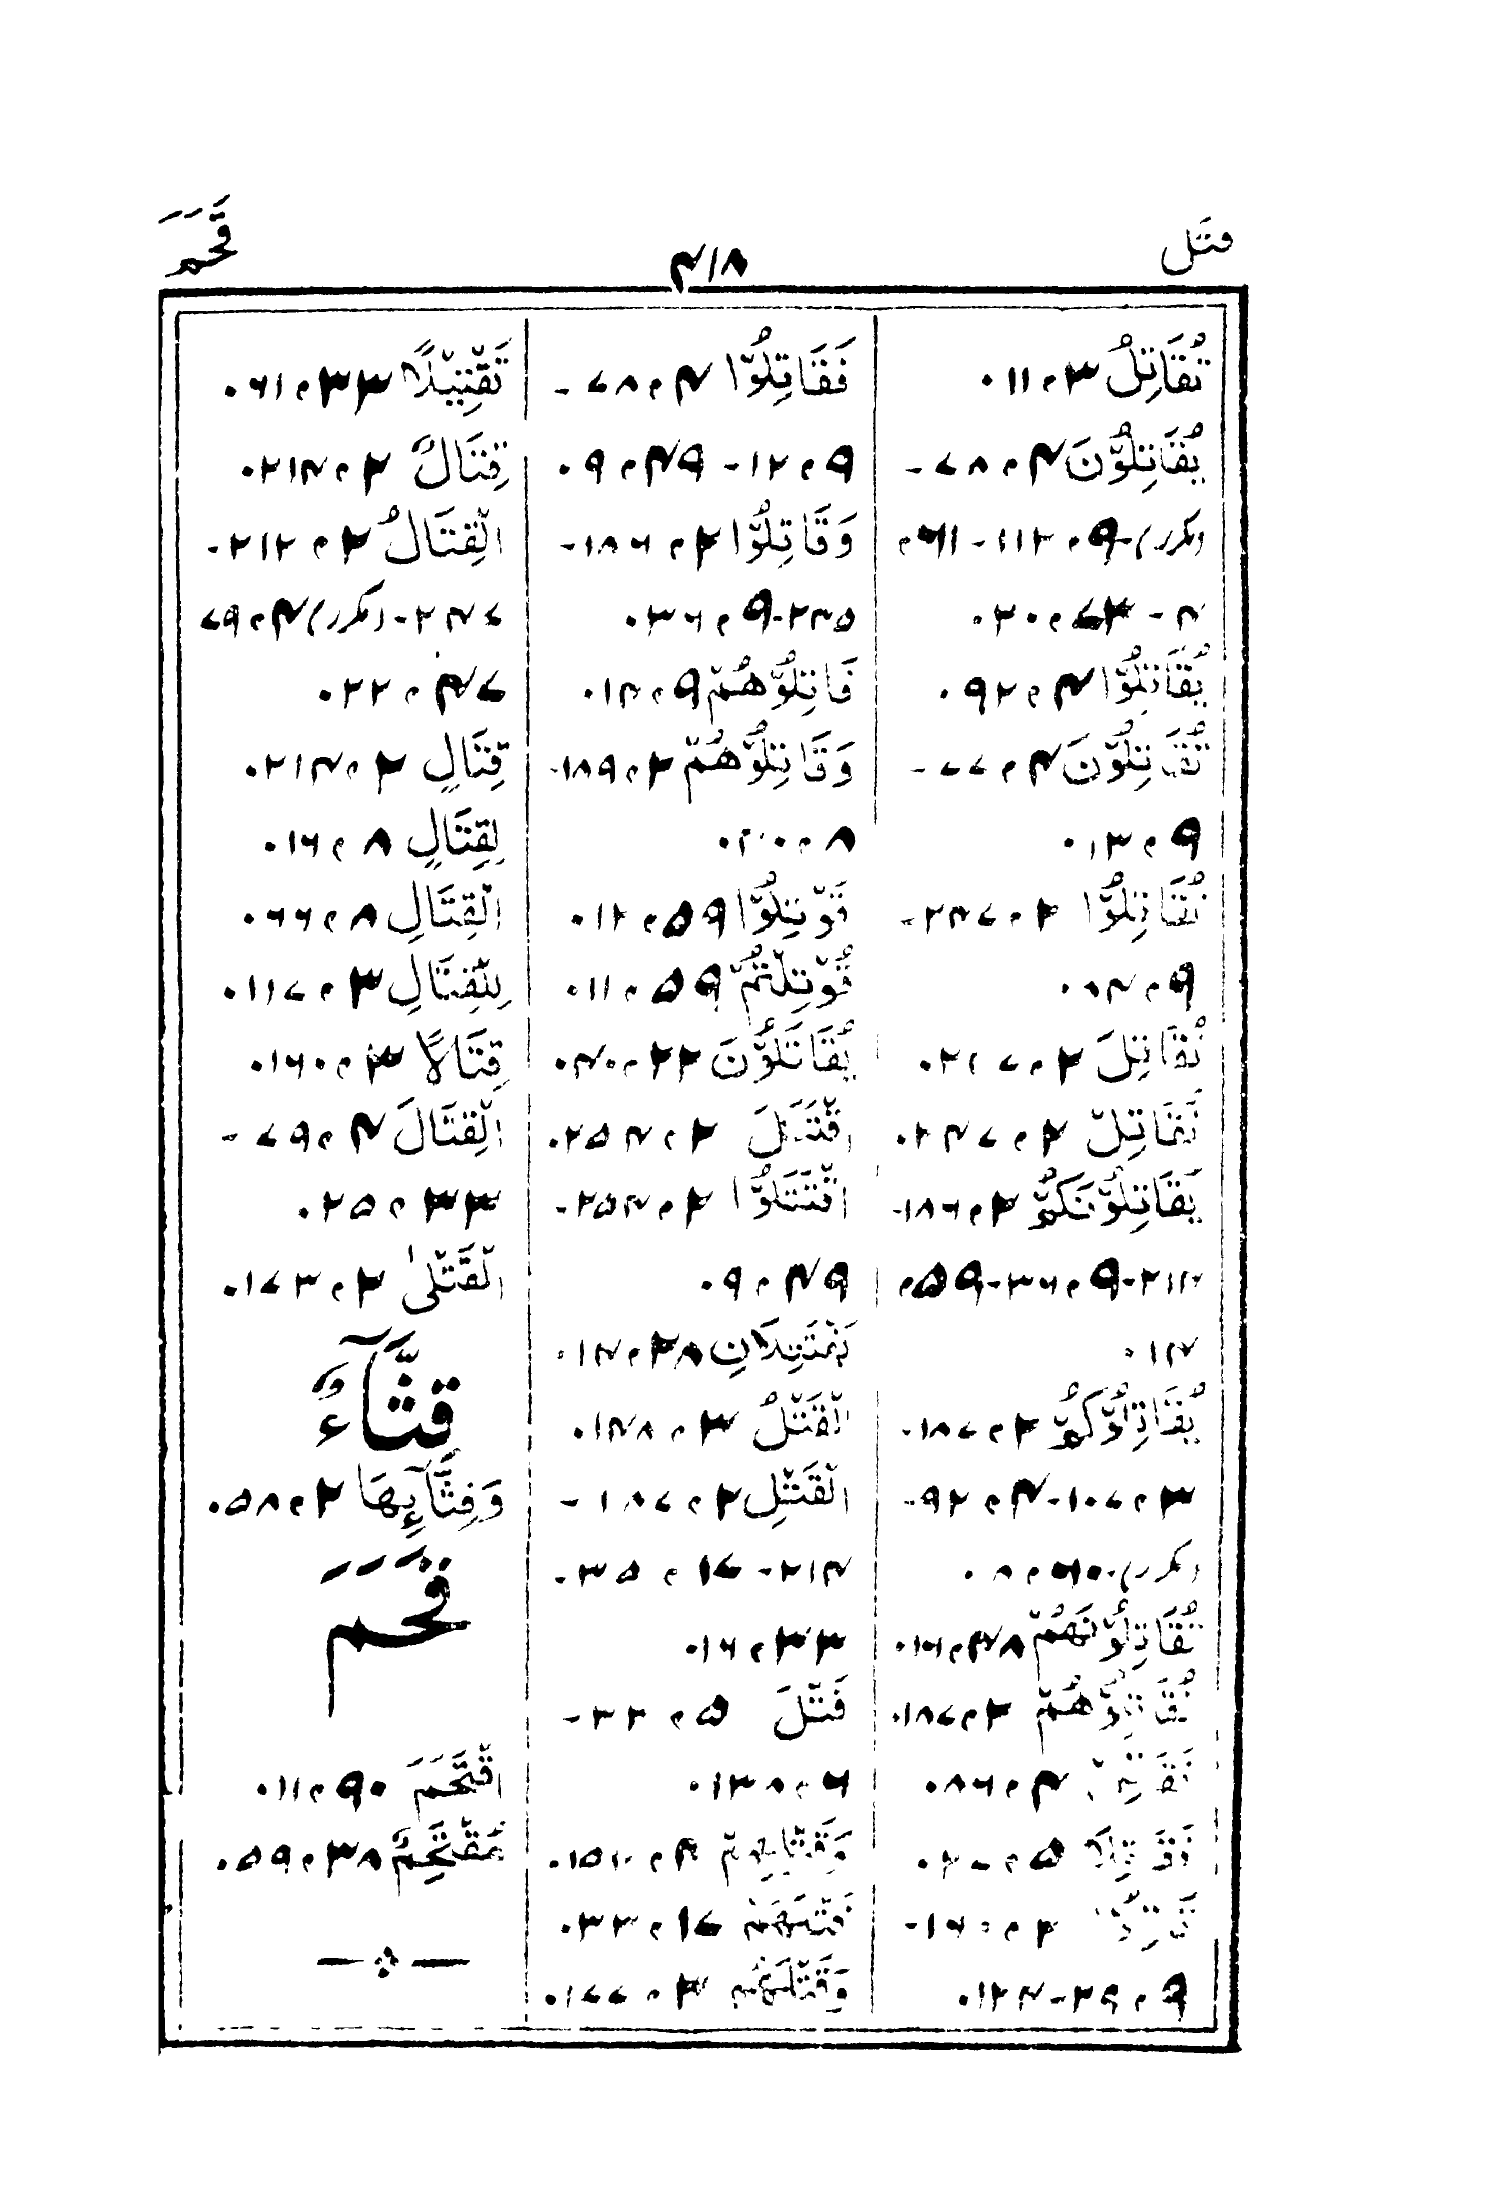 قتل
۴۱۸
قَحَمَ
تُقَاتِلُ ۳م۱۱.
يُقَاتِلُوْنَ ۴م۷۸-
(مکرر)-۹م۱۱۲-۶۱م
۴-۷۳م۲۰.
يُقَاتِلُوْا ۴م۹۲.
تُقَاتِلُوْنَ ۴م۷۷-
۹م۱۳.
تُقَاتِلُوْا ۲م۲۴۷-
۹م
نُقَاتِلَ ۲م
نُقَاتِلْ ۲م۲۴۷.
يُقَاتِلُوْنَكُمْ ۲م۱۸۶-
۲۱۴-۹م۳۶-۵۹م
۱۴.
يُقَاتِلُوْكُمْ ۲م۱۸۷.
۳م۱۰۷-۴م۹۲-
(مکرر)-۶۰م۸.
تُقَاتِلُوْنَهُمْ ۴۸م۱۶.
تُقَاتِلُوْهُمْ ۲م۱۸۷.
۴م۸۶.
۵م
۲م
۹م۲۹-۱۲۴.
فَقَاتِلُوْا ۴م۷۸-
۹م۱۲-۴۹م۹.
وَقَاتِلُوْا ۲م۱۸۶-
۲۴۵-۹م۳۶.
قَاتِلُوْهُمْ ۹م۱۴.
وَقَاتِلُوْهُمْ ۲م۱۸۹-
۸م۴۰.
قُوْتِلُوْا ۵۹م۱۲.
قُوْتِلْتُمْ ۵۹م۱۱.
يُقَاتَلُوْنَ ۲۲م۴۰.
اقْتَتَلَ ۲م۲۵۴.
اقْتَتَلُوْا ۲م۲۵۴-
۴۹م۹.
يَقْتَتِلَانِ ۲۸م۱۴.
الْقَتْلُ ۳م۱۴۸.
الْقَتْلِ ۲م۱۸۷-
۲۱۴-۱۷م۳۵.
۳۳م۱۶.
قَتْلَ ۵م۳۲-
۶م۱۳۸.
وَقَتْلِهِمْ ۴م
قَتْلَهُمْ ۱۷م۳۳.
وَقَتْلَهُمْ ۳م۱۷۷.
تَقْتِيْلًا ۳۳م۶۱.
قِتَالٌ ۲م۲۱۴.
الْقِتَالُ ۲م۲۱۲-
۲۴۷-(مکرر)۴م۷۹
۴۷م۲۲.
قِتَالٍ ۲م۲۱۴.
لِقِتَالٍ ۸م۱۶.
الْقِتَالِ ۸م۶۶.
لِلْقِتَالِ ۳م۱۱۷.
قِتَالًا ۳م۱۶۰.
الْقِتَالَ ۴م۷۹-
۳۳م۲۵.
الْقَتْلٰى ۲م۱۷۳.
قِثَّآءٌ
وَقِثَّآئِهَا ۲م۵۸.
قَحَمَ
اقْتَحَمَ ۹۰م۱۱.
مُقْتَحِمٌ ۳۸م۵۹.